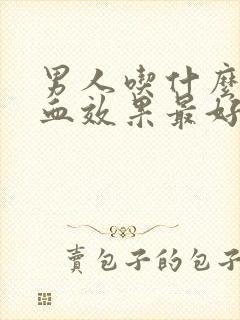 男人喫什麼
血效果最好
賣包子的包子